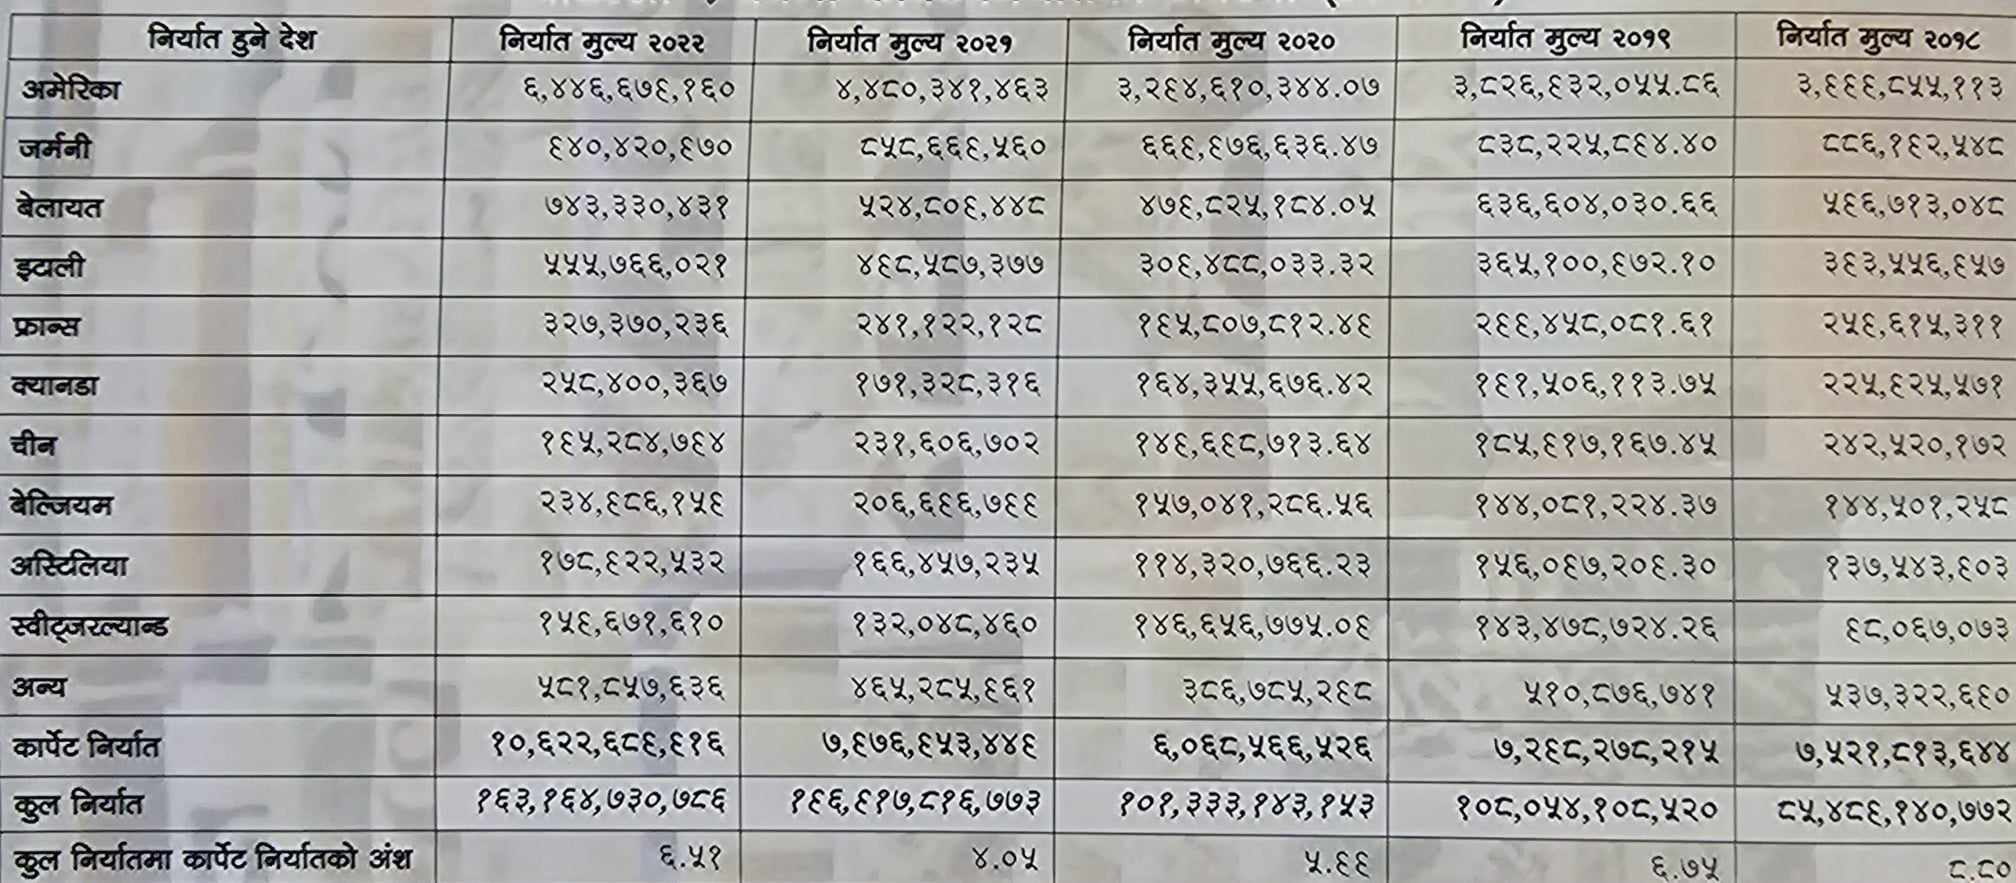 निर्यात हुने देश निर्यात मुल्य २०२२ निर्यात मुल्य २०२१ निर्यात मुल्य २०२० निर्यात मुल्य २०१९ निर्यात मुल्य २०१८
अमेरिका ६,४४६,६७९,१६० ४,४८०,३४१,४६३ ३,२९४,६१०,३४४.०७ ३,८२६,९३२,०५५.८६ ३,९९९,८५५,११३
जर्मनी ९४०,४२०,९७० ८५८,६६९,५६० ६६९,९७६,६३६.४७ ८३८,२२५,८९४.४० ८८६,१९२,५४८
बेलायत ७४३,३३०,४३१ ५२४,८०९,४४८ ४७९,८२५,१८४.०५ ६३६,६०४,०३०.६६ ५९६,७१३,०४८
इटाली ५५५,७६६,०२१ ४९८,५८७,३७७ ३०९,४८८,०३३.३२ ३६५,१००,९७२.१० ३९३,५५६,९५७
फ्रान्स ३२७,३७०,२३६ २४१,१२२,१२८ १९५,८०७,८१२.४९ २९९,४५८,०८१.६१ २५९,६१५,३११
क्यानडा २५८,४००,३६७ १७१,३२८,३१६ १६४,३५५,६७६.४२ १९१,५०६,११३.७५ २२५,९२५,५७१
चीन १९५,२८४,७९४ २३१,६०६,७०२ १४९,६९८,७१३.६४ १८५,९१७,१६७.४५ २४२,५२०,१७२
बेल्जियम २३४,९८६,१५९ २०६,६९६,७९९ १५७,०४१,२८६.५६ १४४,०८१,२२४.३७ १४४,५०१,२५८
अस्टिलिया १७८,९२२,५३२ १६६,४५७,२३५ ११४,३२०,७६६.२३ १५६,०९७,२०९.३० १३७,५४३,९०३
स्वीट्जरल्यान्ड १५९,६७१,६१० १३२,०४८,४६० १४६,६५६,७७५.०९ १४३,४७८,७२४.२६ ९८,०६७,०७३
अन्य ५८१,८५७,६३६ ४६५,२८५,९६१ ३८६,७८५,२९८ ५१०,८७६,७४१ ५३७,३२२,६९०
कार्पेट निर्यात १०,६२२,६८९,९१६ ७,९७६,९५३,४४९ ६,०६८,५६६,५२६ ७,२९८,२७८,२१५ ७,५२१,८१३,६४४
कुल निर्यात १६३,१६४,७३०,७८६ १९६,९१७,८१६,७७३ १०१,३३३,१४३,१५३ १०८,०५४,१०८,५२० ८५,४८९,१४०,७७२
कुल निर्यातमा कार्पेट निर्यातको अंश ६.५१ ४.०५ ५.९९ ६.७५ ८.८०